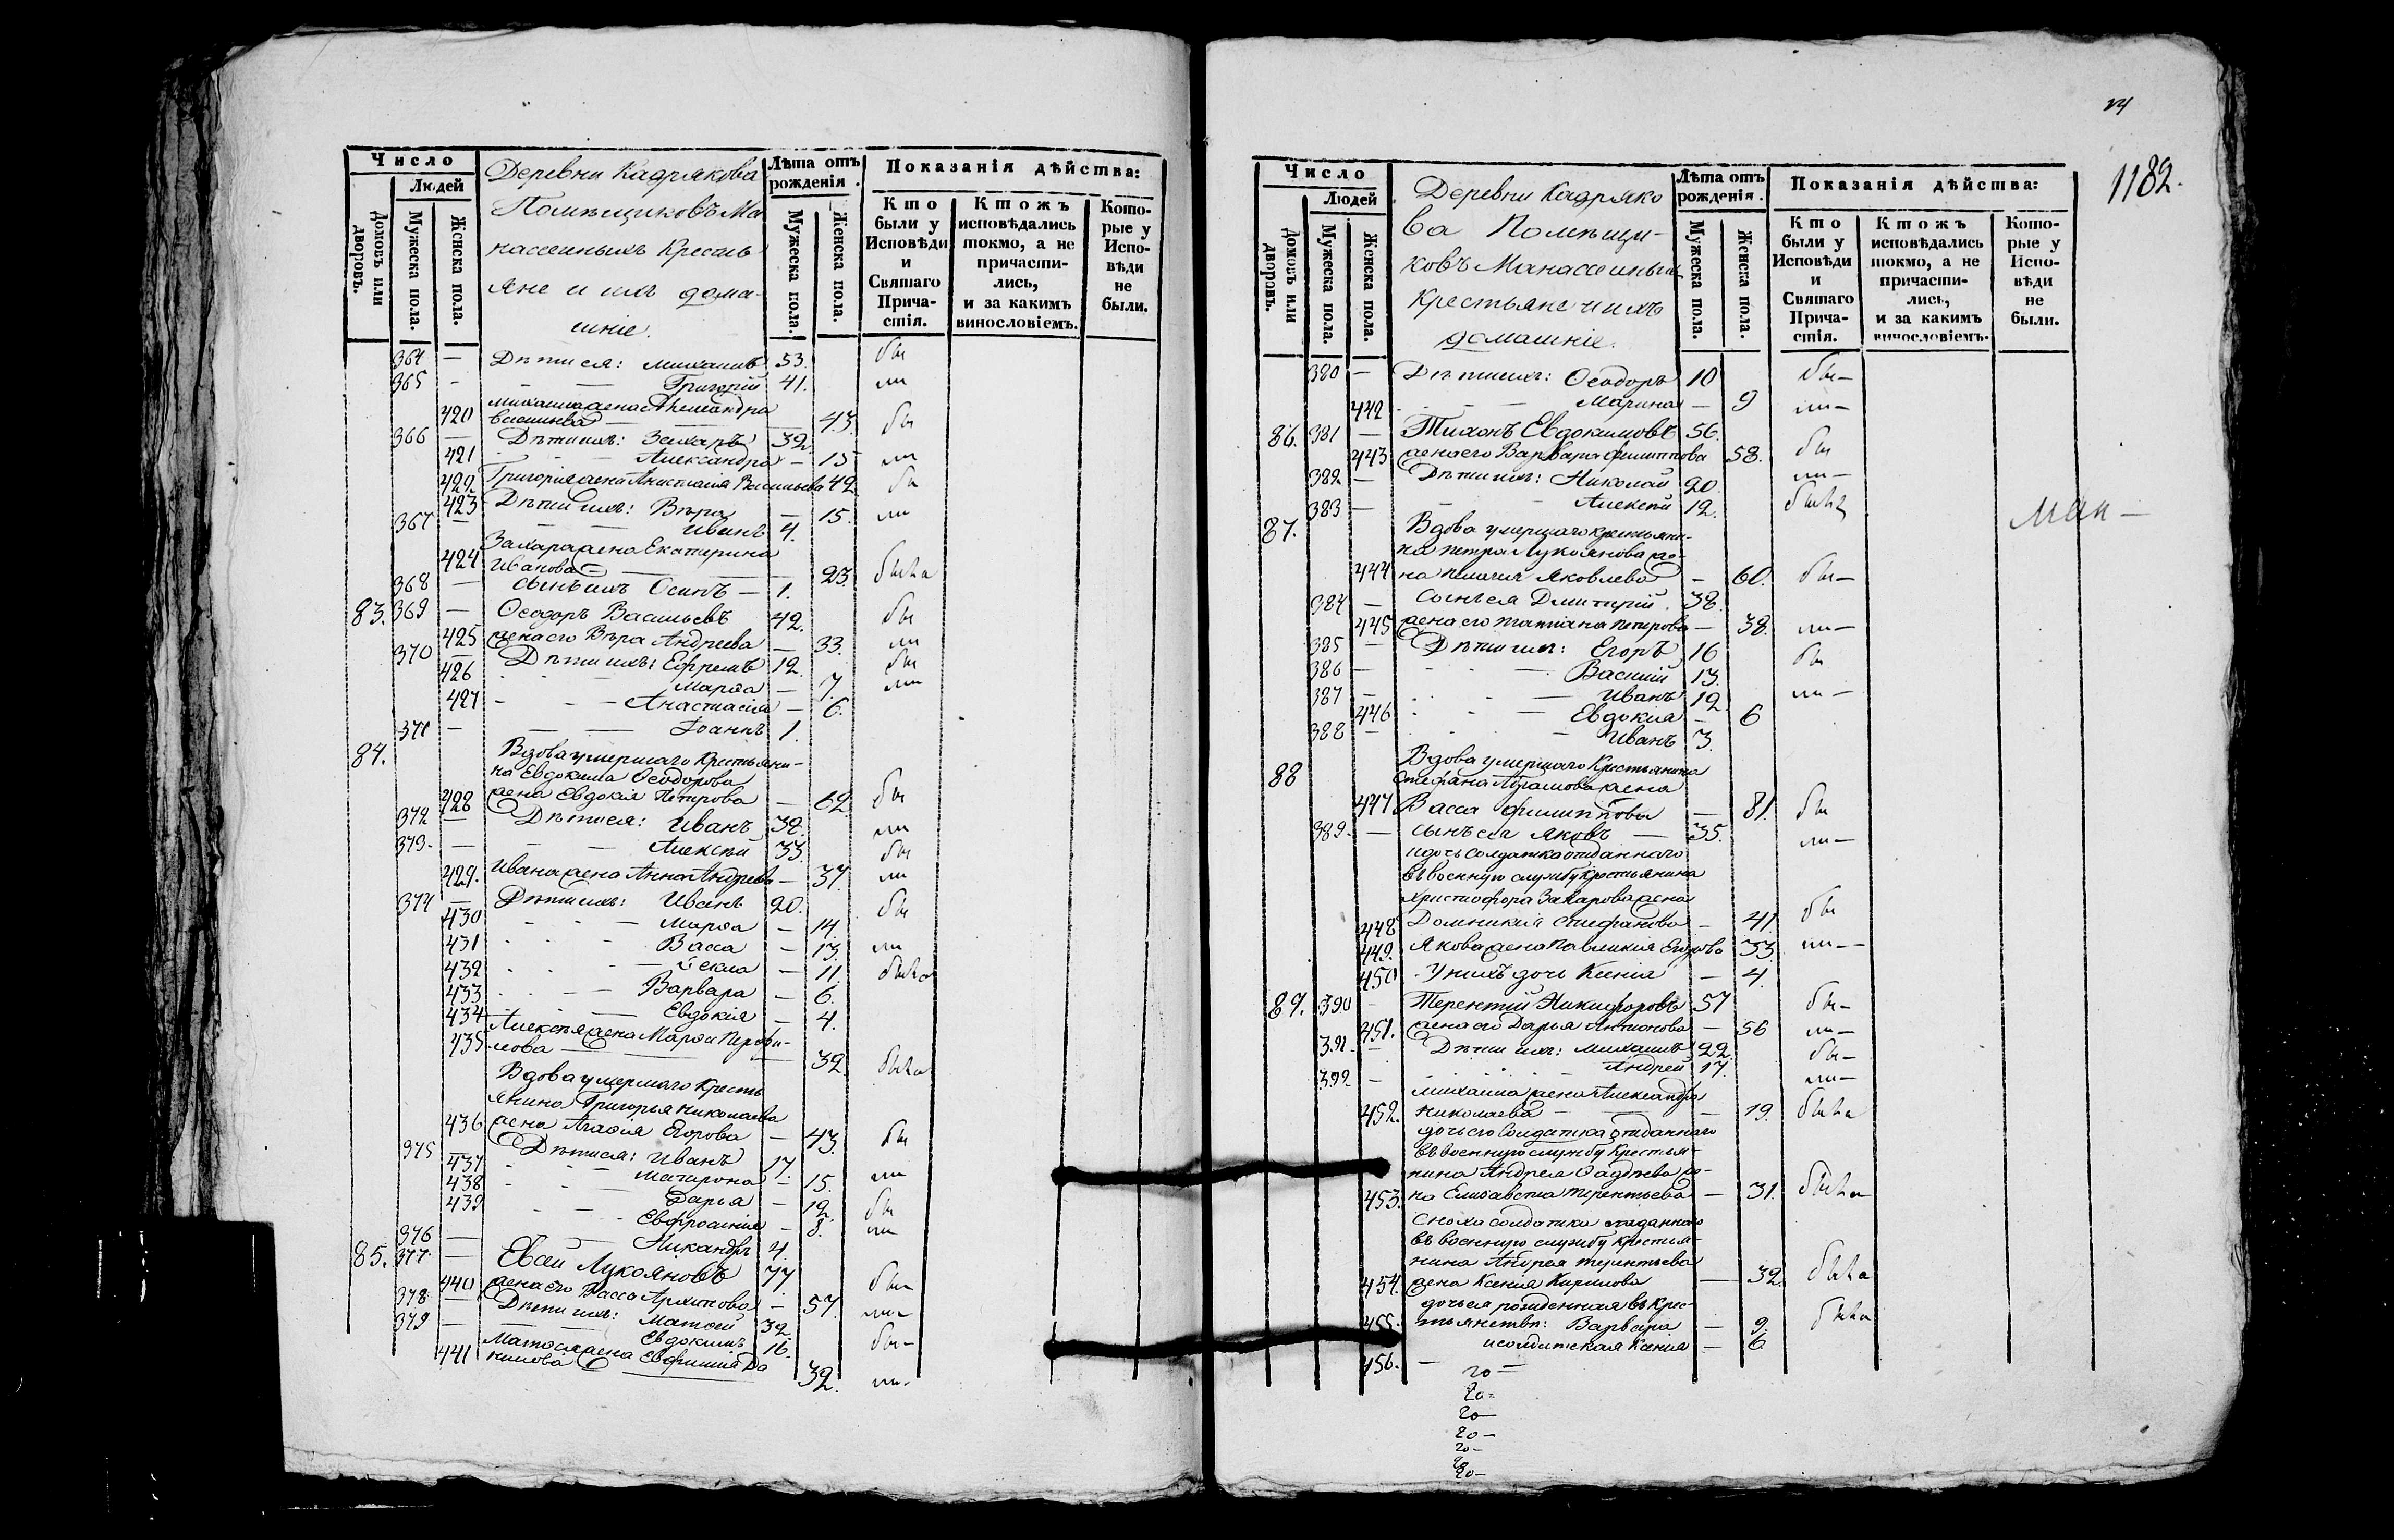 Число
Людей
Домовъ или дворовъ.
Мужеска пола.
Женска пола.
Деревни Кадрякова
Помѣщиковъ Ма
нассеиныхъ Кресть
яне и ихъ дома-
шніе.
Лѣта отъ рожденія.
Мужеска пола.
Женска пола.
Показанія дѣйства:
Кто были у Исповѣди и Святаго Причастія.
Ктожъ исповѣдались токмо, а не причастились, и за какимъ винословіемъ.
Которые у Исповѣди не были.
364 — Дѣти ея: Михаилъ 53. бы
365 - — Григорій 41. ли
Михаила жена Александра
420 Васильева — 43. бы
366 — Дѣти ихъ: Захаръ 32.
421 Александра — 15 ли
422 Григорія жена Анастасія Васильева 42 бы
423 Дѣти ихъ: Вѣра — 15. ли
367 — Иванъ 4.
Захара жена Екатерина
424 Иванова — 23. были
368 — сынъ ихъ Осипъ — 1.
83. 369 — Ѳеодоръ Васильевъ 42. бы
425 жена его Вѣра Андреева — 33. ли
370 — Дѣти ихъ: Ефремъ 12. бы
426 - - Марѳа — 7. ли
427 - - — Анастасія — 6.
371 — — — Іоаннъ 1.
84. Вдова умершаго Крестьяни-
на Евдокима Ѳеодорова
428 жена Евдокія Петрова — 62 бы
372 — Дѣти ея: Иванъ 38. ли
373. — — — Алексѣй 33. бы
429. Ивана жена Анна Андреева — 37. ли
374 — Дѣти ихъ: Иванъ 20. бы
430 - - — Марѳа — 14.
431 - - - Васса — 13. ли
432 - - — Ѳекла — 11. были
433 - - — Варвара — 6.
434 — Евдокія — 4.
Алексѣя жена Марѳа Перфи-
435 лова — 32. были
Вдова умершаго Кресть
янина Григорья Николаева
436 жена Агаѳія Егорова — 43. бы
375 — Дѣти ея: Иванъ 17.
437 - - — Матрона — 15. ли
438 - - — Дарья — 12. бы
439 - - - Евфросинія — 8. ли
376 — — Никандръ 4.
85. 377. — Евсей Лукояновъ 77.
440 жена его Васса Архипова — 57. бы
378. — Дѣти ихъ: Матѳей 32. ли
379 — — Евдокимъ 16. бы-
Матѳея жена Евфимія Да
441 нилова 32. ли-
1182.
Число
Людей
Домовъ или дворовъ.
Мужеска пола.
Женска пола.
Деревни Кадряко
ва Помѣщи-
ковъ Манассеиныхъ
Крестьяне и ихъ
домашніе.
Лѣта отъ рожденія.
Мужеска пола.
Женска пола.
Показанія дѣйства:
Кто были у Исповѣди и Святаго Причастія.
Ктожъ исповѣдались токмо, а не причастились, и за какимъ винословіемъ.
Которые у Исповѣди не были.
380 — Дѣти ихъ: Ѳеодоръ 10 бы—
442 - - — Марина — 9 ли—
86. 381 — Тихонъ Евдокимовъ 56.
443 жена его Варвара Филиппова 58. бы
382 — Дѣти ихъ: Николай 20. ли—
383 — - - Алексѣй 12. были
87. Вдова умершаго крестьяни-
на Петра Лукоянова же-
444 на Пелагія Яковлева — 60. бы—
384 — Сынъ ея Дмитрій. 38.
445 жена его Татіана Петрова — 38. ли—
385 — Дѣти ихъ: Егоръ 16 бы
386 — - - — Василій 13.
387 — - - — Иванъ 12. ли—
446 - - — Евдокія — 6
388 — - - - Иванъ 3.
88 Вдова умершаго Крестьянина
Стефана Абрамова жена
447 Васса Филиппова — 81. бы
389. — сынъ ея Яковъ — 35. ли—
и дочь Солдатка отданнаго
въ военную службу крестьянина
Христофора Захарова жена
448 Домникія Стефанова — 41. бы
449. Якова жена Павликія Егорова 33. ли—
450 У нихъ дочь Ксенія — 4.
89. 390 - Терентій Никифоровъ 57 бы-
451. жена его Дарья Антонова — 56 ли—
391. — Дѣти ихъ: Михаилъ 22. бы-
392 — Андрей 17. ли—
Михаила жена Александра
452. Николаева — 19. были
дочь его Солдатка отданнаго
въ военную службу Крестья-
нина Андрея Фадѣева же-
453. на Елисавета Терентьева — 31. были
Сноха солдатка отданнаго
въ военную службу крестья-
нина Андрея Терентьева
454. жена Ксенія Кирилова — 32. были
дочь ея рожденная въ Крес-
455. тьянствѣ: Варвара — 9. были
и солдатская Ксенія — 6
456. —
20 —
20-
20—
20—
20—
20-